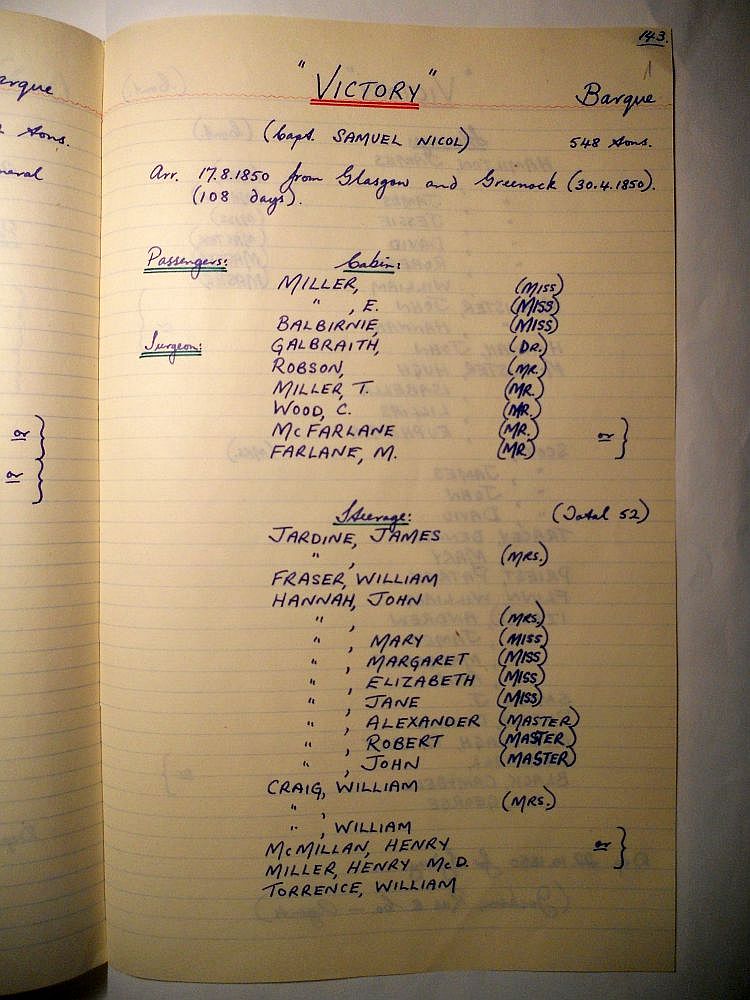 143.
"VICTORY" Barque
(Capt. SAMUEL NICOL) 548 tons.
Arr. 17.8.1850 from Glasgow and Greenock (30.4.1850).
(108 days).
Passengers: Cabin:
MILLER, (MISS)
" , E. (MISS)
BALBIRNIE, (MISS)
Surgeon: GALBRAITH, (DR.)
ROBSON, (MR.)
MILLER, T. (MR.)
WOOD, C. (MR.)
McFARLANE (MR.)
FARLANE, M. (MR.) or }
Steerage: (Total 52)
JARDINE, JAMES
" , (MRS.)
FRASER, WILLIAM
HANNAH, JOHN
" , (MRS.)
" , MARY (MISS)
" , MARGARET (MISS)
" , ELIZABETH (MISS)
" , JANE (MISS)
" , ALEXANDER (MASTER)
" , ROBERT (MASTER)
" , JOHN (MASTER)
CRAIG, WILLIAM
" , (MRS.)
" , WILLIAM
McMILLAN, HENRY
MILLER, HENRY McD. or }
TORRENCE, WILLIAM